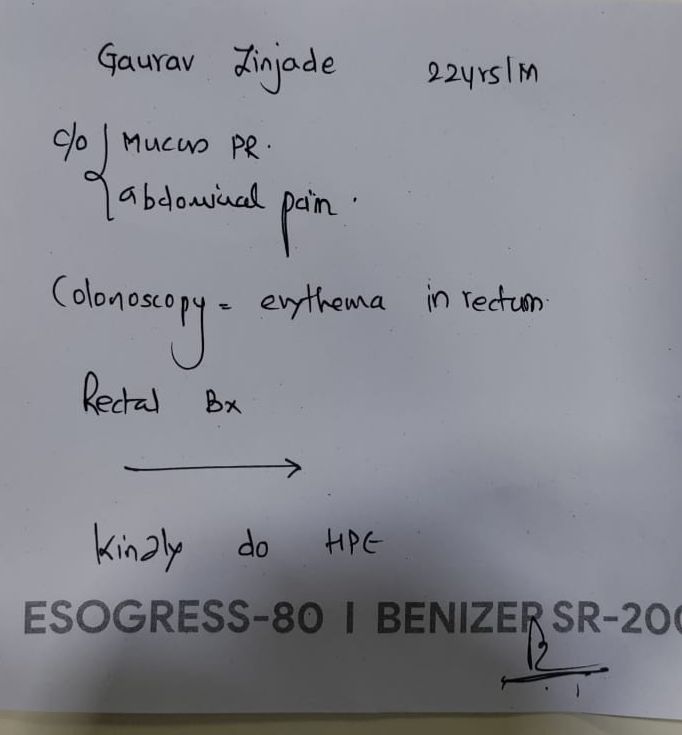 Gaurav Zinjade 22yrs/M
c/o Mucus PR.
abdominal pain.
Colonoscopy = erythema in rectum.
Rectal Bx
Kindly do HPE
ESOGRESS-80 | BENIZER SR-200